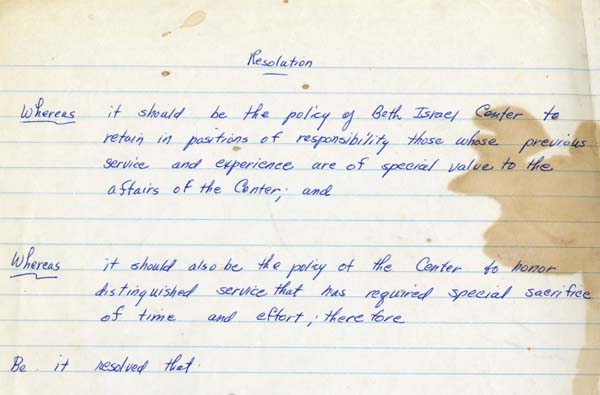 Resolution
Whereas it should be the policy of Beth Israel Center to
retain in positions of responsibility those whose previous
service and experience are of special value to the
affairs of the Center; and
Whereas it should also be the policy of the Center to honor
distinguished service that has required special sacrifice
of time and effort; therefore
Be it resolved that